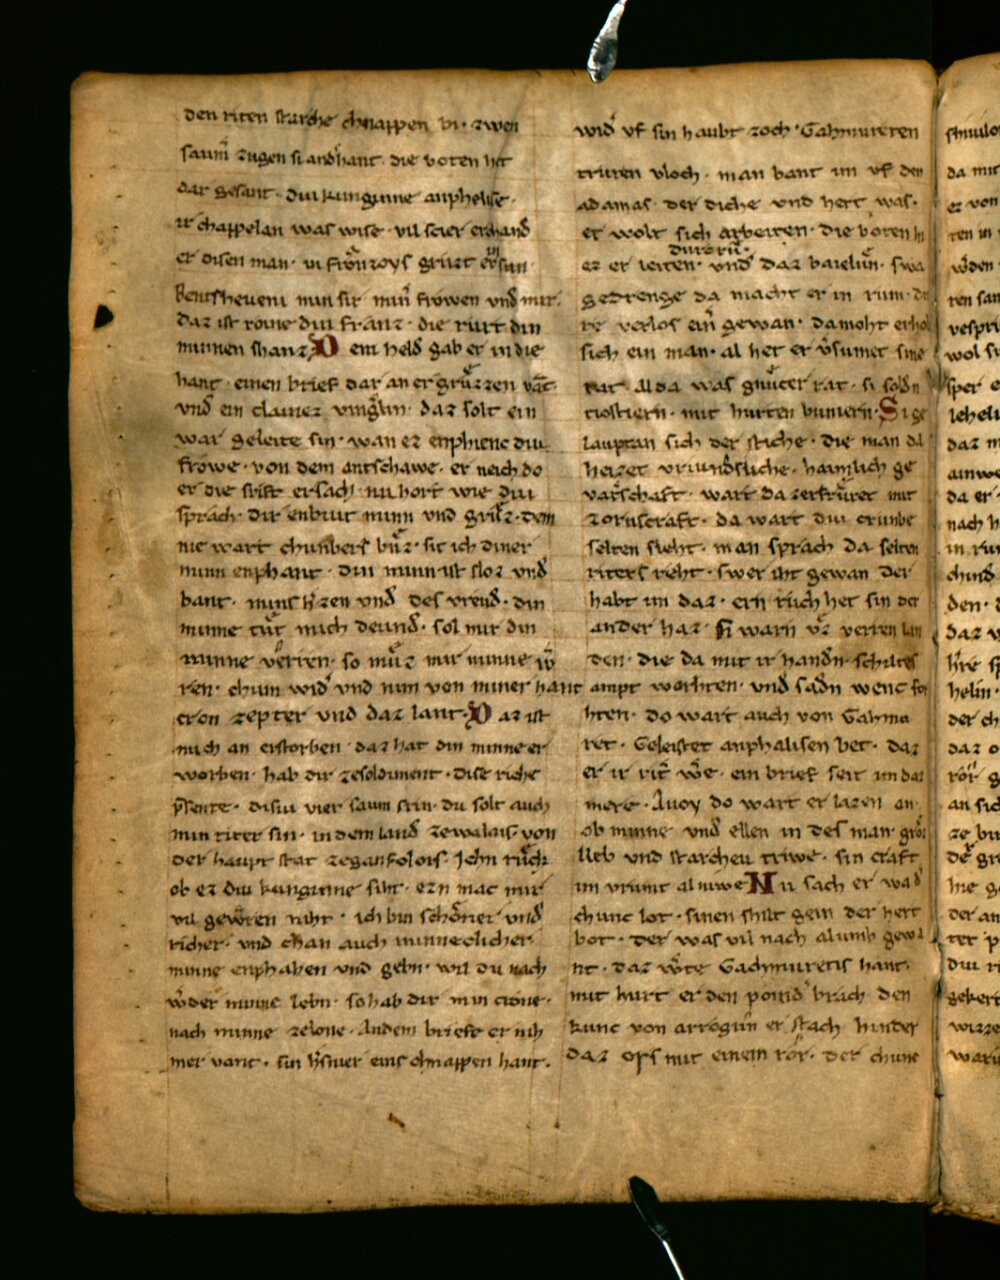 den riten starche chnappen bi · zwen
saum̄ zugen si andˢhant · die boten het
dar gesant · dui kunginne anpholise ·
ir chappelan was wise · vil scier erchand
er disen man · in franzoys gruzt er sun
Bentsheueni mun sir min frowen vnd mir ·
daz ist roine dui franz · die rurt din
minnen shanz D em held gab er in die
hant · einen brief dar an er gruzzen vāt
vnd ein clainez vingˢlin · daz solt ein
war geleite sin · wan ez enphienc dui
frowe · von dem antschawe · er neich do
er die srift ersach · nu hort wie dui
sprach · dir enbiut minn vnd gruz · dem
nie wart chunbers buz · sit ich diner
minn enphant · din minn ist sloz vnd
bant · mins hˢzen vnd des vreud · din
minne tut mich deund · sol mir din
minne verren · so muz mir minne w
ren · chum widˢ vnd nim von miner hant
cron zepter vnd daz lant · D az ist
mich an erstorben · daz hat din minne er
worben · hab dir zesoldiment · dise riche
psente · disiu vier saum scrin · du solt auch
min riter sin · in dem land zewalais · von
der haupt stat zeganfolois · Ichn ruch
ob ez dui kunginne siht · ezn mac mir
vil gewˢren niht · ich bin schoner vnd
richer · vnd chan auch minneclicher
minne enphahen vnd gebn · wil du nach
wˢder minne lebn · so hab dir min crone ·
nach minne zelone · Andem briefe er nih
mer vant · sin hˢsnier eins chnappen hant ·
widˢ vf sin haubt zoch · Gahmureten
truren vloch · man bant im vf den
adamas · der diche vnd hert was ·
er wolt sich arbeiten · die boten hi
durch ru ·
ez er leiten · vnd daz baielun · swa
gedrenge da macht er in rum · di
re verlos ein gewan · da moht erhol
sich ein man · al het er vˢsumet sine
tat al da was gnucer rat · si soldn
tiostiern · mit hurten buniern · S i ge
lauptan sich der stiche · die man da
heizet vriundsliche · haimlich ge
varschaft · wart da zerfruret mit
zornscraft · da wart diu crunbe
selten sleht · man sprach da selten
riters reht · swer iht gewan der
habt im daz · ern ruch het sin der
ander haz · si warn vz verren lan
den · die da mit ir handn · schiltes
ampt worhten · vnd sadn wenc for
hten · do wart auch von Gahmu
ret · Geleistet anphalisen bet · daz
er ir rit wˢe · ein brief seit im daz
mere · Avoy do wart er lazen an ·
ob minne vnd ellen in des man · groz
lieb vnd starcheu triwe · sin craft
im vriunt al niwe N u sach er wa d
chunc lot · sinen shilt gein der hert
bot · der was vil nach alumb gewa
nt · daz wˢte Gachmuretis hant ·
mit hurt er den poindˢ brach den
kunc von arrogun er stach hinder
daz ors mit einem ror · der chunc